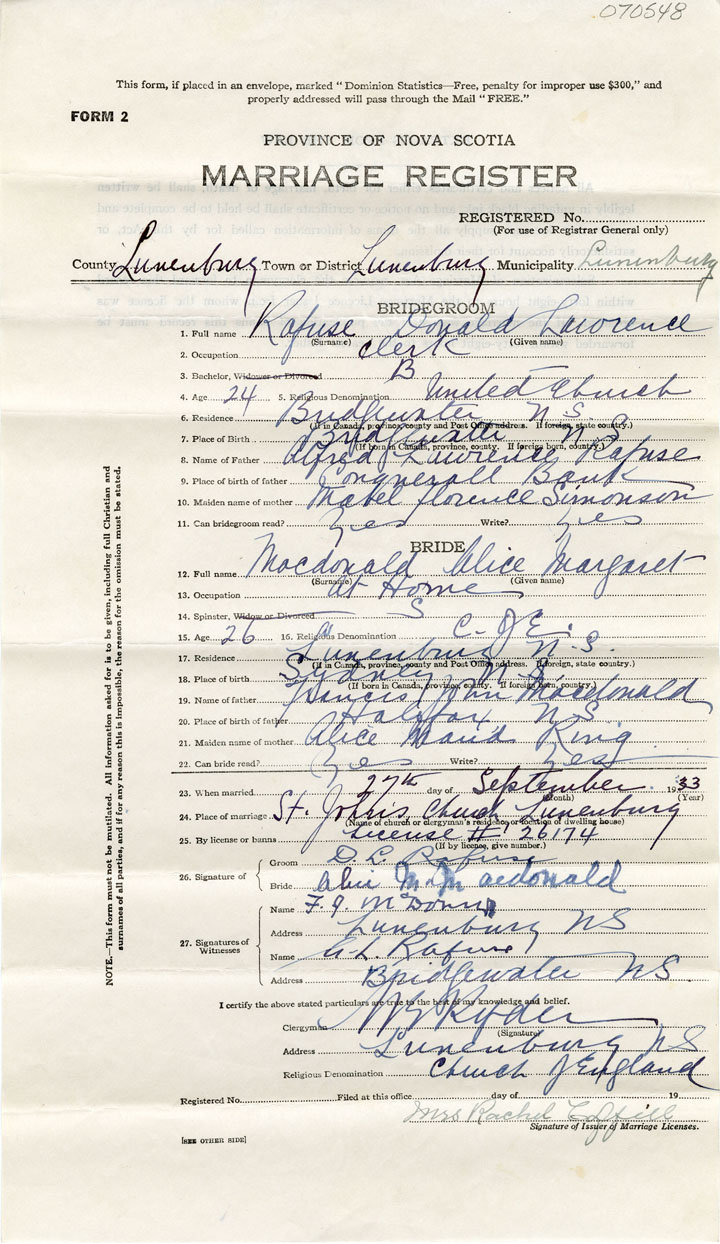 070548
This form, if placed in an envelope, marked "Dominion Statistics—Free, penalty for improper use $300," and
properly addressed will pass through the Mail "FREE."
FORM 2
PROVINCE OF NOVA SCOTIA
MARRIAGE REGISTER
REGISTERED No.
(For use of Registrar General only)
County Lunenburg Town or District Lunenburg Municipality Lunenburg
BRIDEGROOM
1. Full name Rafuse Donald Lawrence
(Surname) (Given name)
2. Occupation clerk
3. Bachelor, Widower or Divorced B
4. Age 24 5. Religious Denomination United Church
6. Residence Bridgewater N S
(If in Canada, province, county and Post Office address. If foreign, state country.)
7. Place of Birth Bridgewater N S
(If born in Canada, province, county. If foreign born, country.)
8. Name of Father Alfred Lawrence Rafuse
9. Place of birth of father Conquerall Bank
10. Maiden name of mother Mabel Florence Simonson
11. Can bridegroom read? yes Write? yes
BRIDE
12. Full name Macdonald Alice Margaret
(Surname) (Given name)
13. Occupation at Home
14. Spinster, Widow or Divorced S
15. Age 26 16. Religious Denomination C. of E.
17. Residence Lunenburg N.S.
(If in Canada, province, county and Post Office address. If foreign, state country.)
18. Place of birth Sydney N.S.
(If born in Canada, province, county. If foreign born, country.)
19. Name of father Francis John Macdonald
20. Place of birth of father Halifax N S
21. Maiden name of mother Alice Maud King
22. Can bride read? yes Write? yes
23. When married 27th day of September 1933
(Month) (Year)
24. Place of marriage St. John's Church Lunenburg
(Name of church or clergyman's residence or location of dwelling house)
25. By license or banns License # 26174
(If by license, give number.)
26. Signature of
Groom D. L. Rafuse
Bride Alice M. Macdonald
27. Signatures of Witnesses
Name
Address Lunenburg NS
Name A L Rafuse
Address Bridgewater NS.
I certify the above stated particulars are true to the best of my knowledge and belief.
Clergyman Ryder
(Signature)
Address Lunenburg NS
Religious Denomination Church of England
Registered No. Filed at this office day of 19
Mrs Rachel
Signature of Issuer of Marriage Licenses.
[SEE OTHER SIDE]
NOTE.—This form must not be mutilated. All information asked for is to be given, including full Christian and
surnames of all parties, and if for any reason this is impossible, the reason for the omission must be stated.